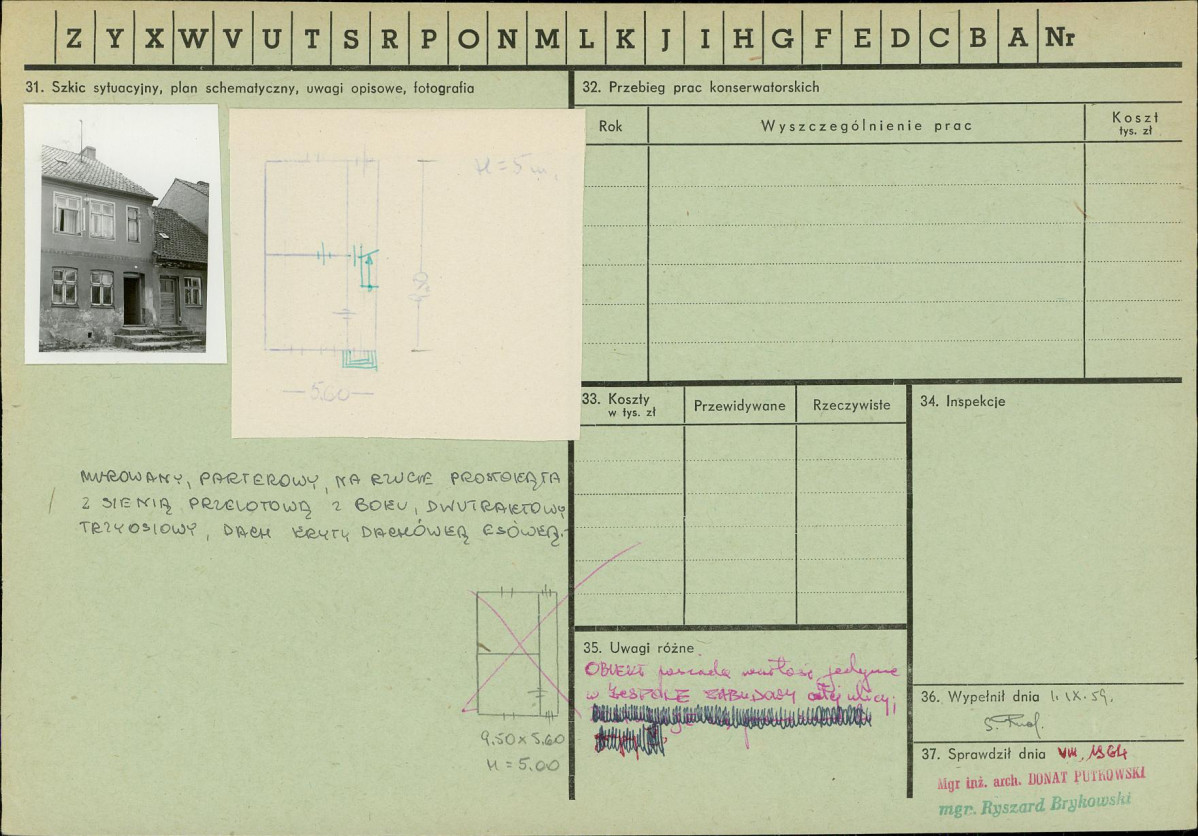 Z Y X W V U T S R P O N M L K J I H G F E D C B A Nr
31. Szkic sytuacyjny, plan schematyczny, uwagi opisowe, fotografia
H = 5 m.
9.50
5.60
MUROWANY, PARTEROWY, NA RZUCIE PROSTOKĄTA
Z SIENIĄ PRZELOTOWĄ Z BOKU, DWUTRAKTOWY
TRZYOSIOWY, DACH KRYTY DACHÓWKĄ ESÓWKĄ.
9.50 x 5.60
H = 5.00
32. Przebieg prac konserwatorskich
Rok
Wyszczególnienie prac
Koszt
tys. zł
33. Koszty
w tys. zł
Przewidywane
Rzeczywiste
34. Inspekcje
35. Uwagi różne
OBIEKT posiada wartość jedynie
w ZESPOLE ZABUDOWY całej ulicy;
36. Wypełnił dnia 1.IX.59.
37. Sprawdził dnia VIII. 1964
Mgr inż. arch. DONAT PUTKOWSKI
mgr. Ryszard Brykowski